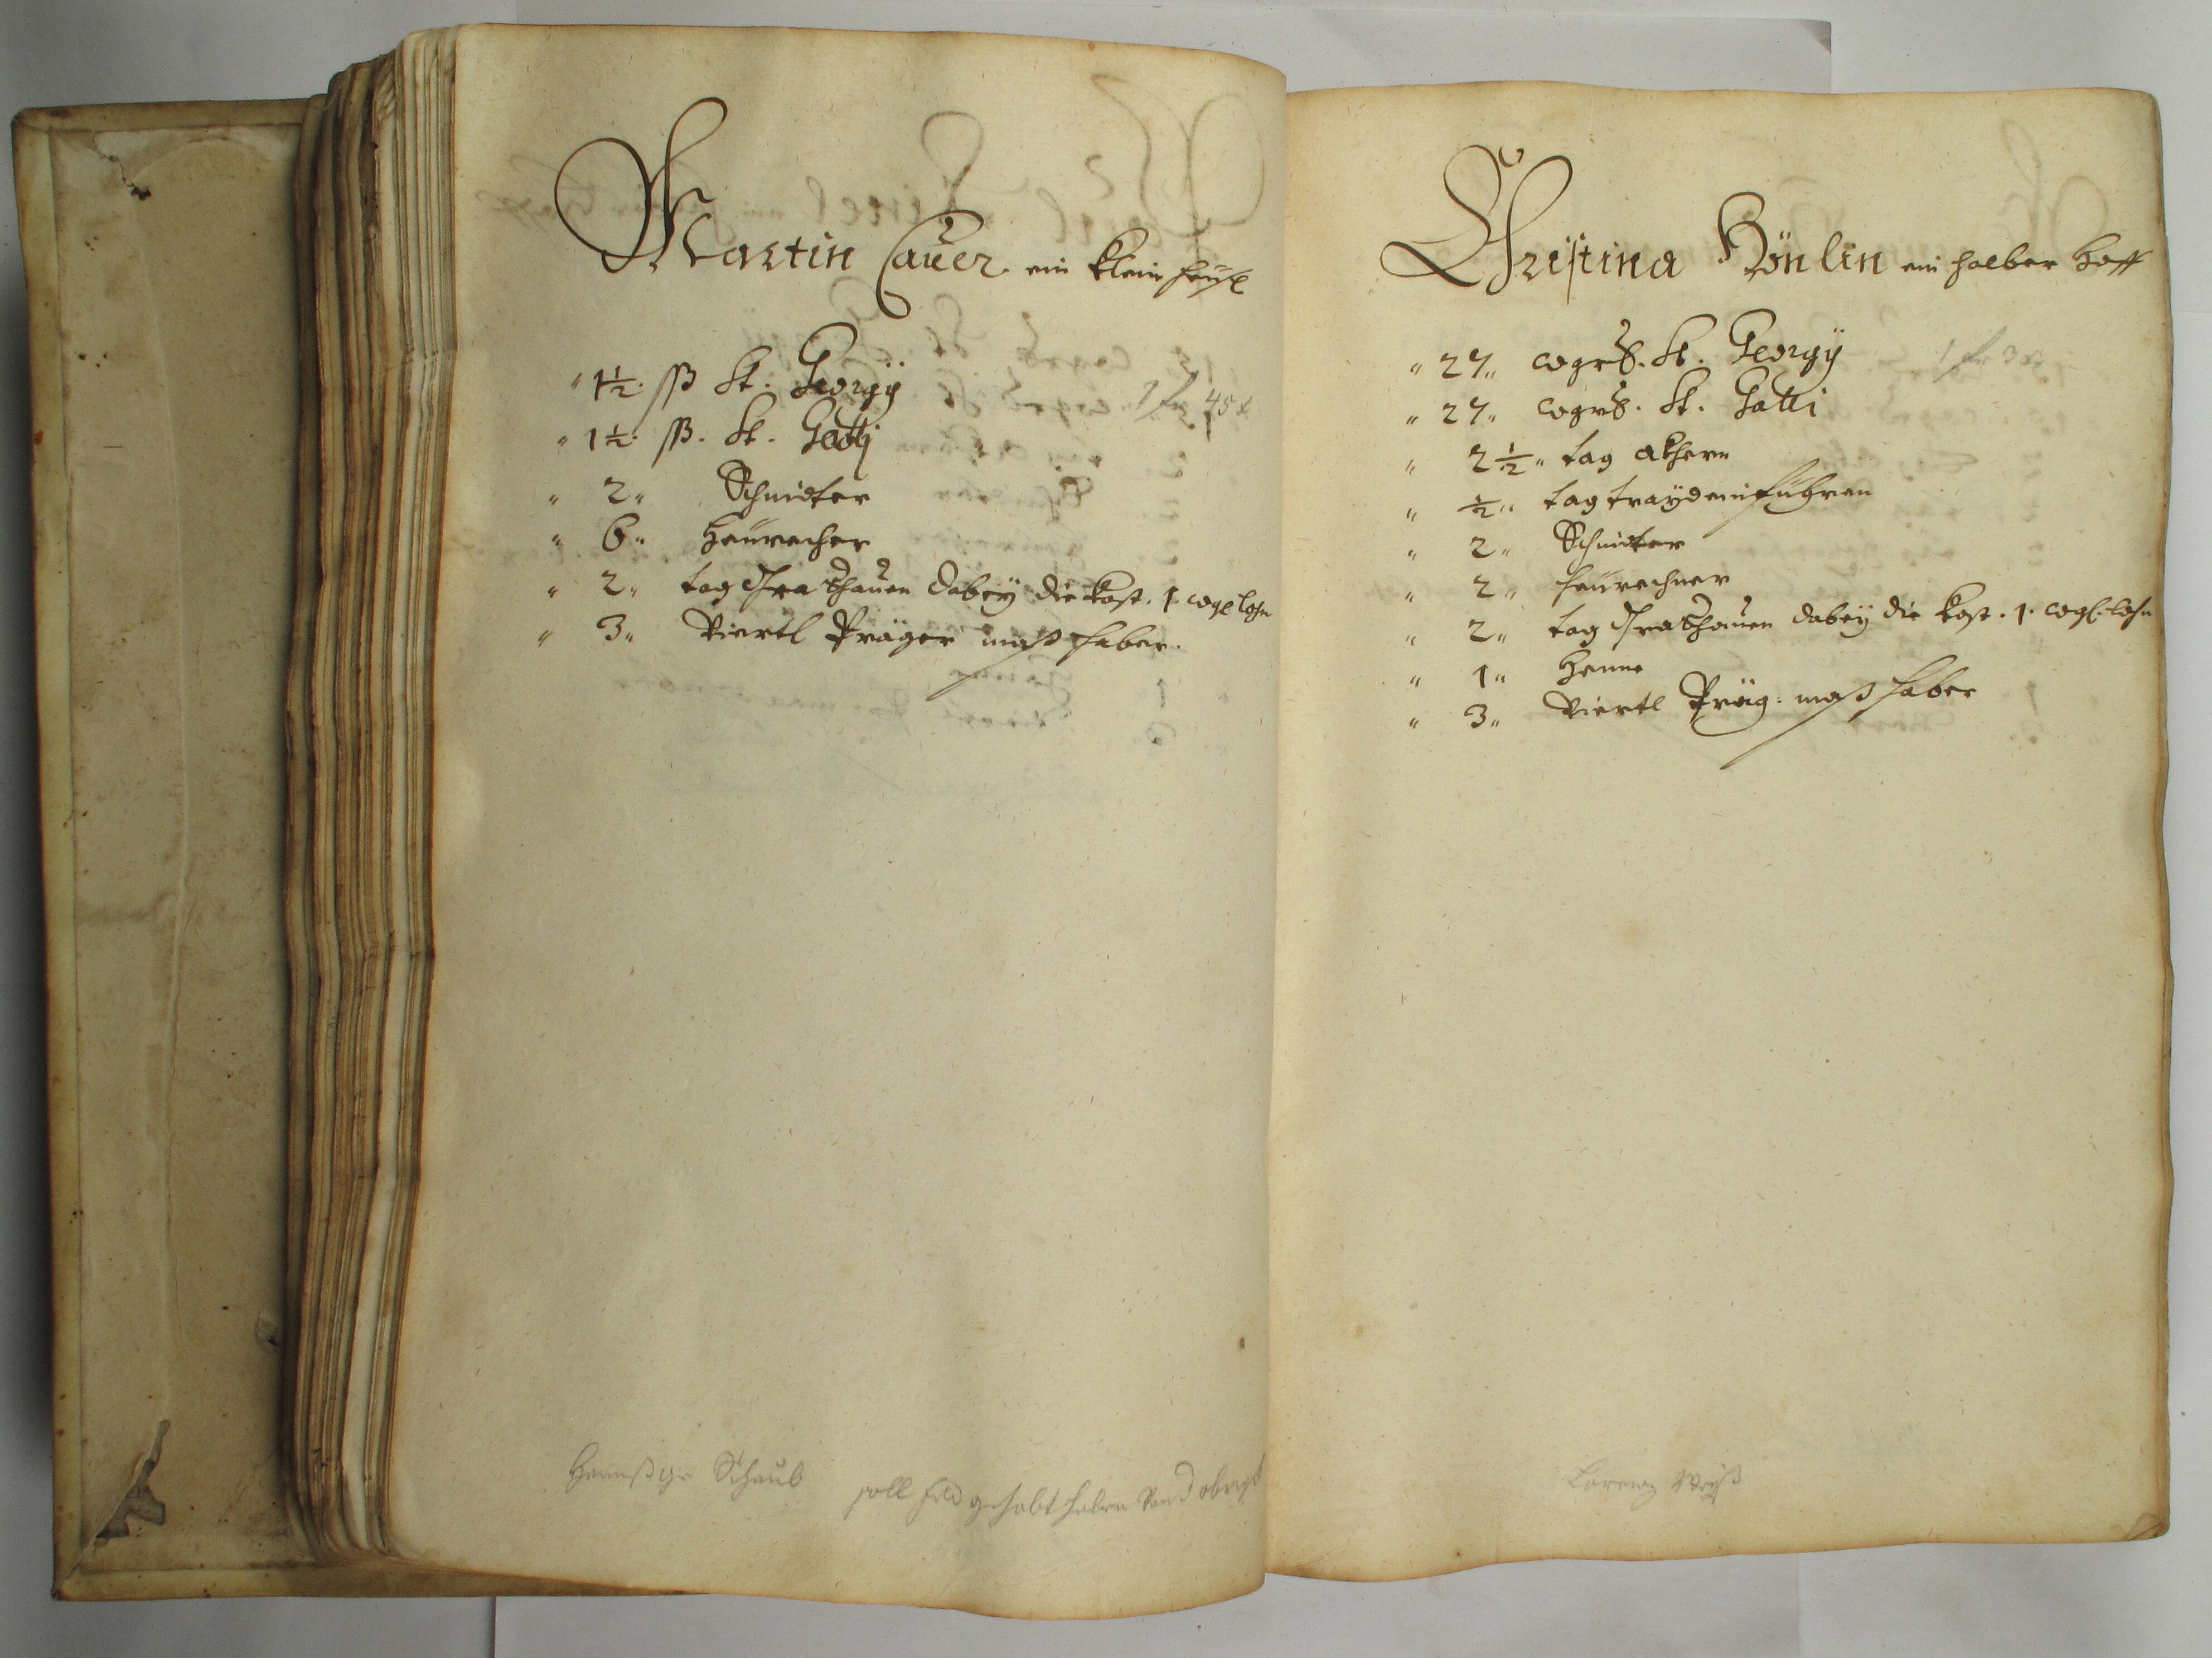 Martin Cauer. ein klein heüsl
" 1½. ßß St. Georgÿ
1 f 45 x
" 1½. ßß. St. Galli
" 2 " Schnidter
" 6 " Heürecher
" 2 " tag Graßhauen dabeÿ die Kost. 1. wgl lohn
" 3 " Viertl Präger maß haber.
Schaub soll feld gehabt haben
Christina Hönlin ein halber Hoff
" 27 " wgrß. St. Georgÿ
1 f 3 x
" 27 " wgrß. St. Galli
" 2½ " tag akhern
" ½ " tag traÿd einführen
" 2 " Schnidter
" 2 " heürechner
" 2 " tag Graßhauen dabeÿ die Kost. 1. wgl. lohn
" 1 " Henne
" 3 " Viertl Präg: maß haber
Lorenz